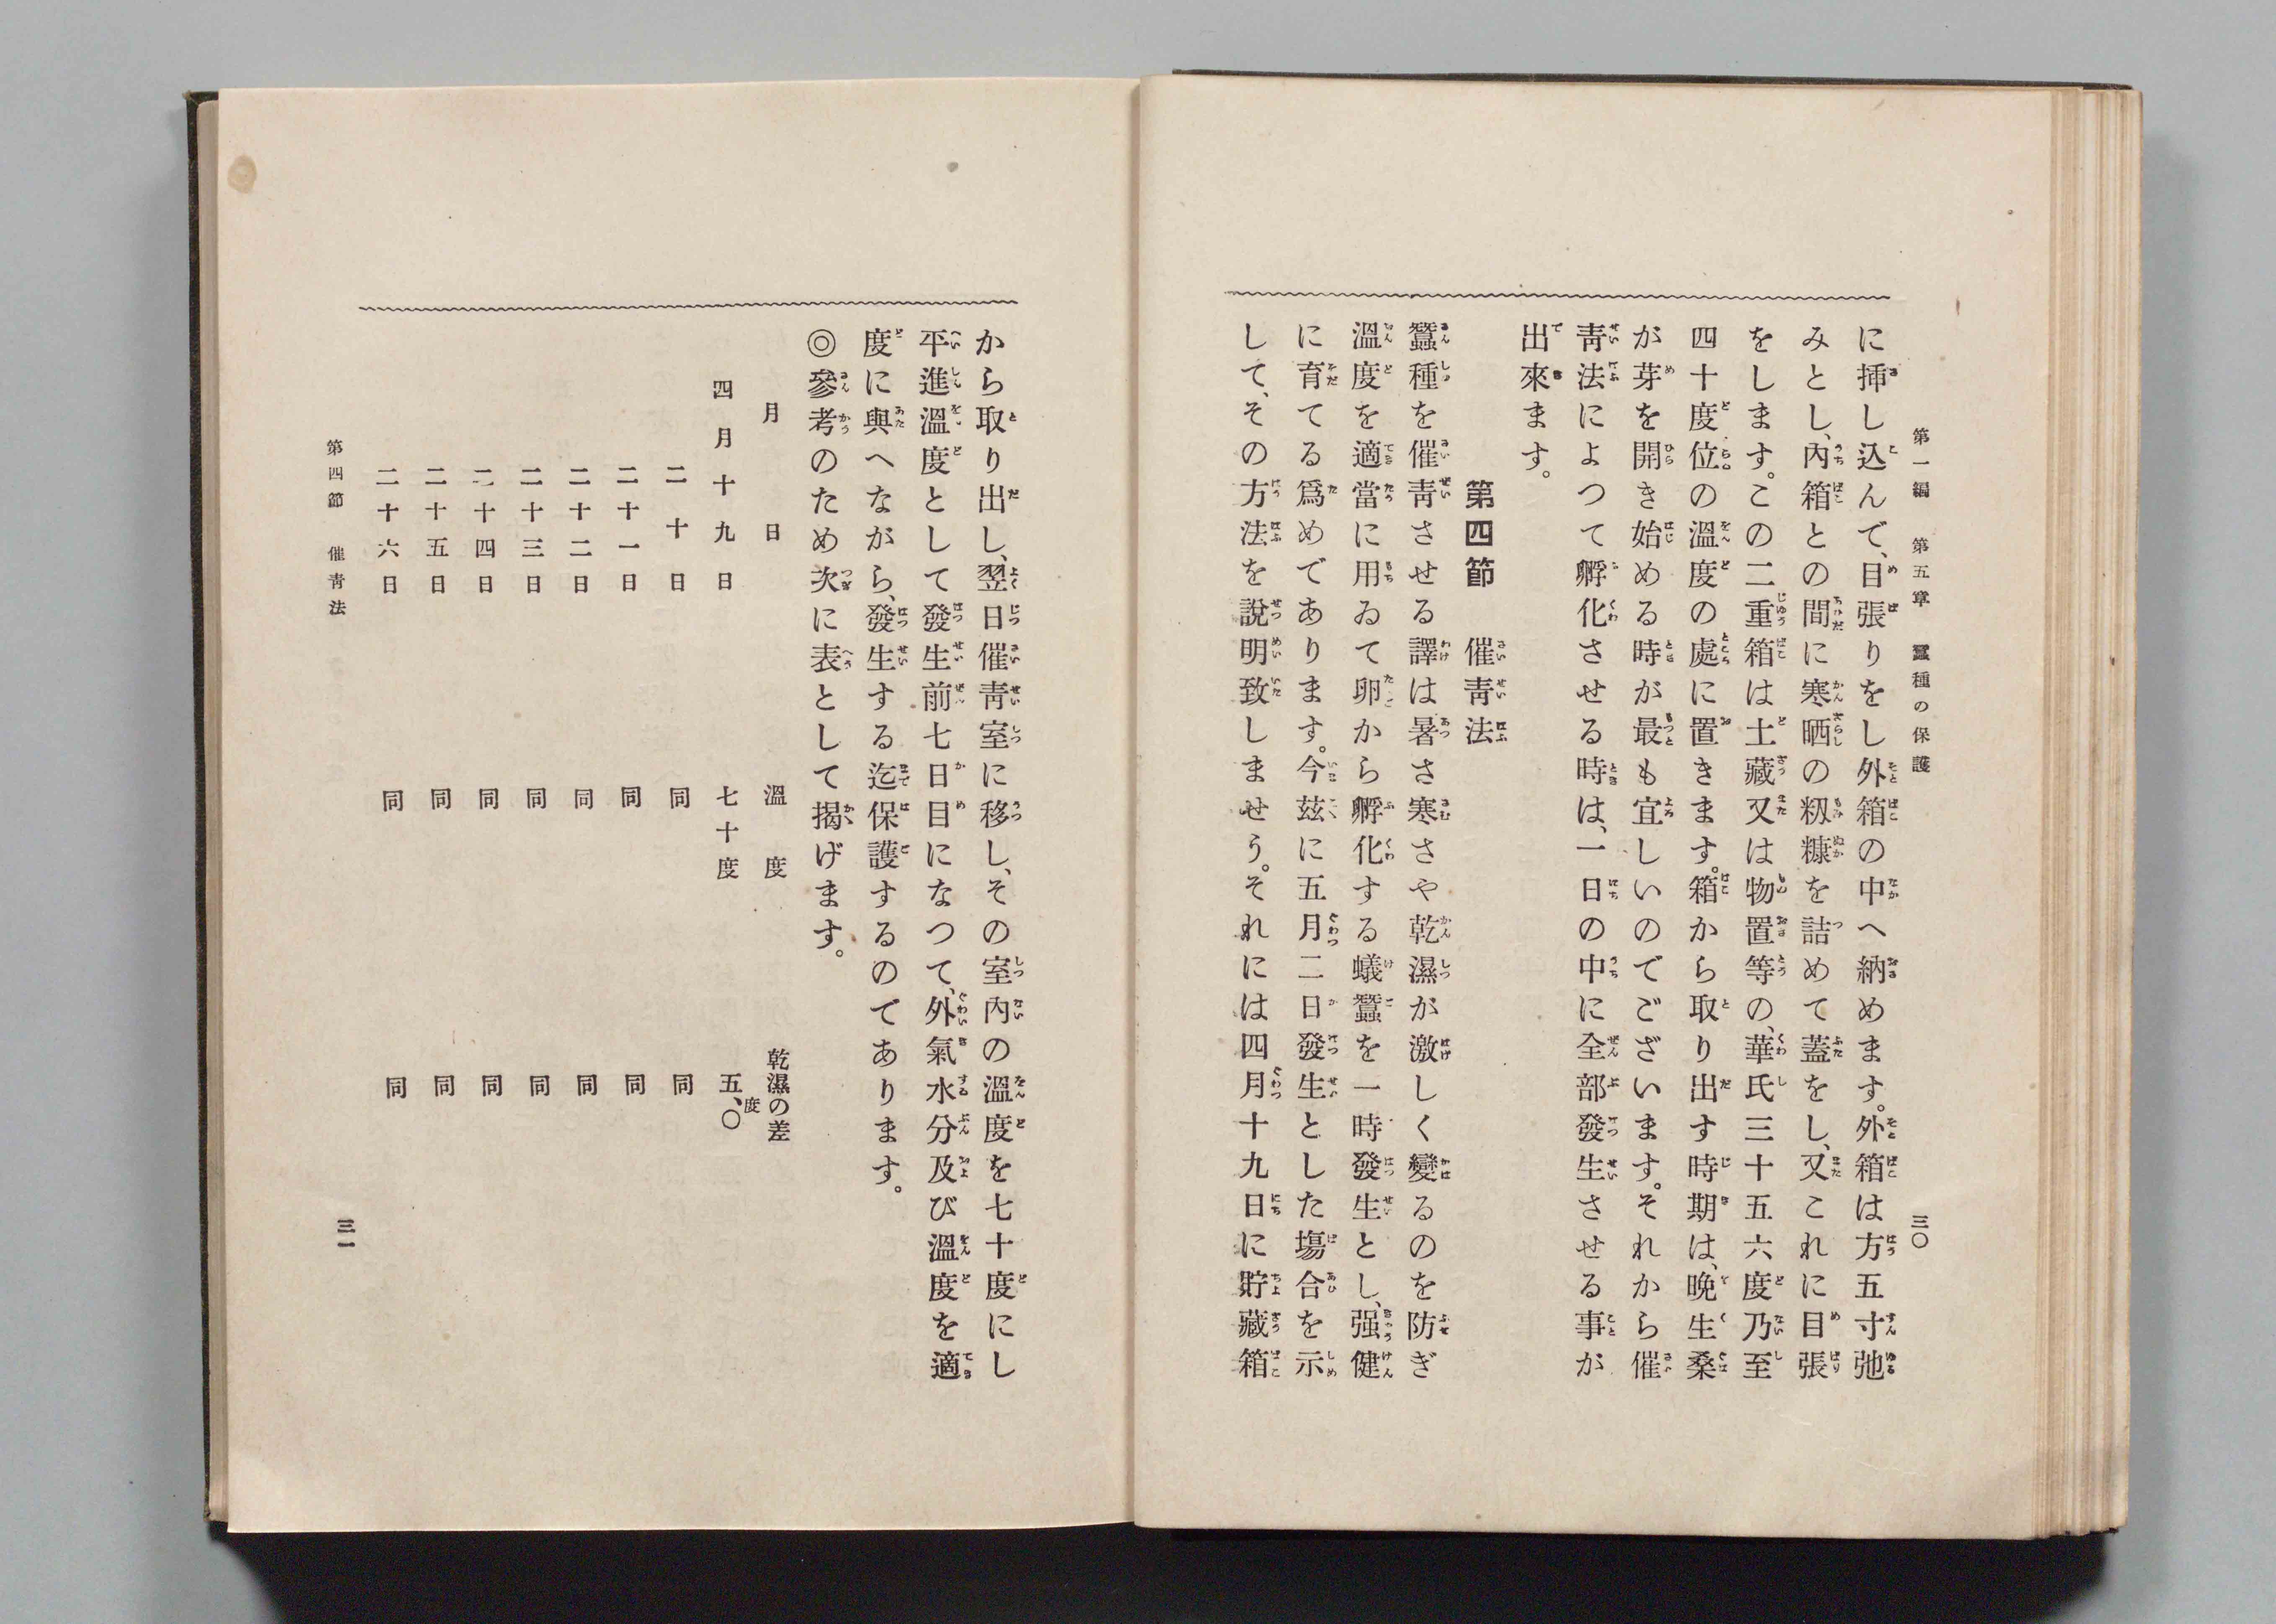 第一編　第五章　蠶種の保護　三〇
に挿し込んで、目張りをし外箱の中へ納めます。外箱は方五寸弛
みとし、內箱との間に寒晒の籾糠を詰めて蓋をし、又これに目張
をします。この二重箱は土藏又は物置等の、華氏三十五六度乃至
四十度位の溫度の處に置きます。箱から取り出す時期は、晩生桑
が芽を開き始める時が最も宜しいのでございます。それから催
靑法によつて孵化させる時は、一日の中に全部發生させる事が
出來ます。
第四節　催靑法
蠶種を催靑させる譯は暑さ寒さや乾濕が激しく變るのを防ぎ
溫度を適當に用ゐて卵から孵化する蟻蠶を一時發生とし、强健
に育てる爲めであります。今玆に五月二日發生とした塲合を示
して、その方法を說明致しませう。それには四月十九日に貯藏箱
から取り出し、翌日催靑室に移し、その室內の溫度を七十度にし
平進溫度として發生前七日目になつて、外氣水分及び溫度を適
度に與へながら、發生する迄保護するのてあります。
◎參考のため次に表として揭げます。
月　日　溫　度　乾濕の差
四月十九日　七十度　五、〇度
二十日　同　同
二十一日　同　同
二十二日　同　同
二十三日　同　同
二十四日　同　同
二十五日　同　同
二十六日　同　同
第四節　催靑法　三一